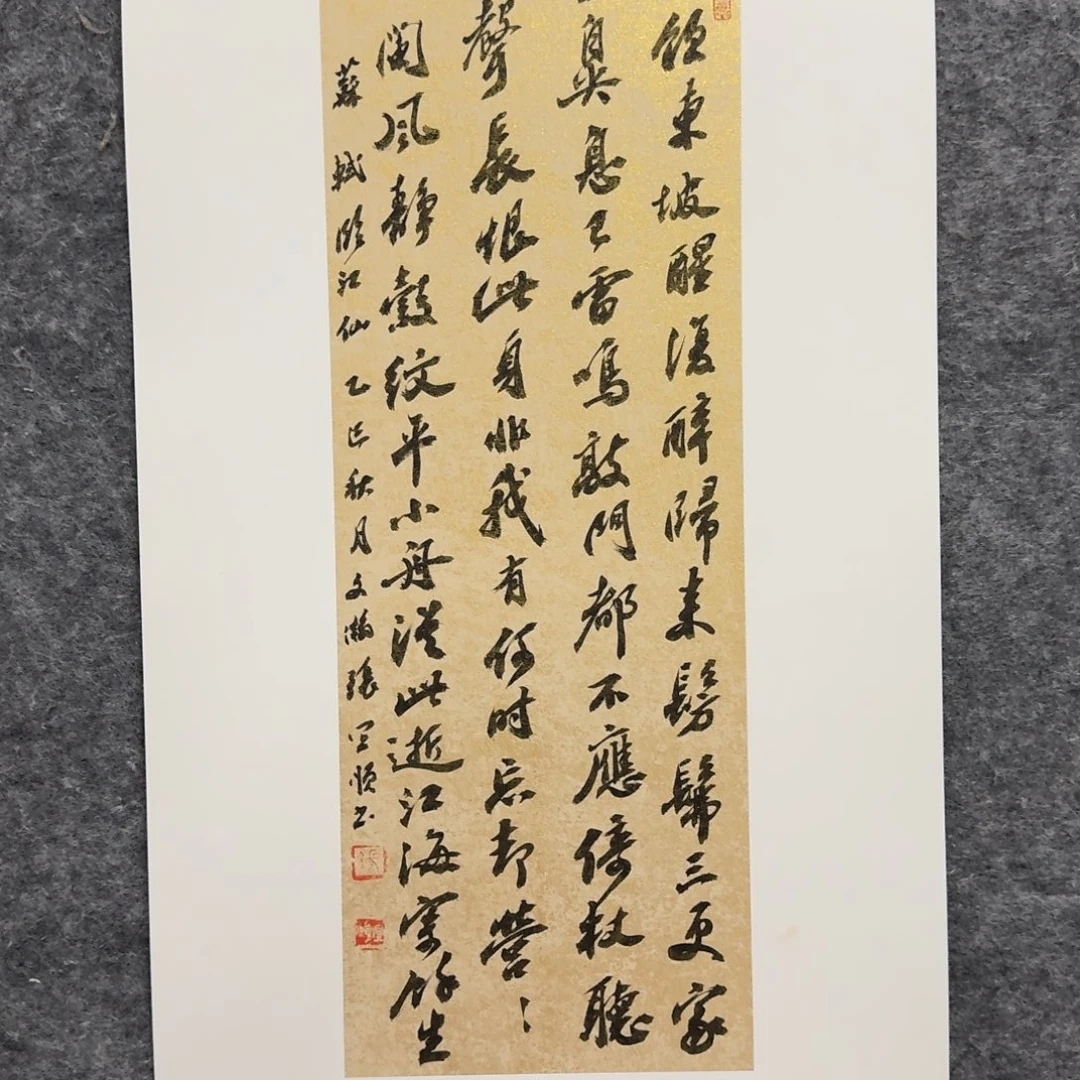 飲東坡醒復醉歸來髣髴三更家
鼻息已雷鳴敲門都不應倚杖聽
聲長恨此身非我有何時忘却營〻
闌風靜縠紋平小舟從此逝江海寄餘生
蘇軾臨江仙乙巳秋月文瀚張順書